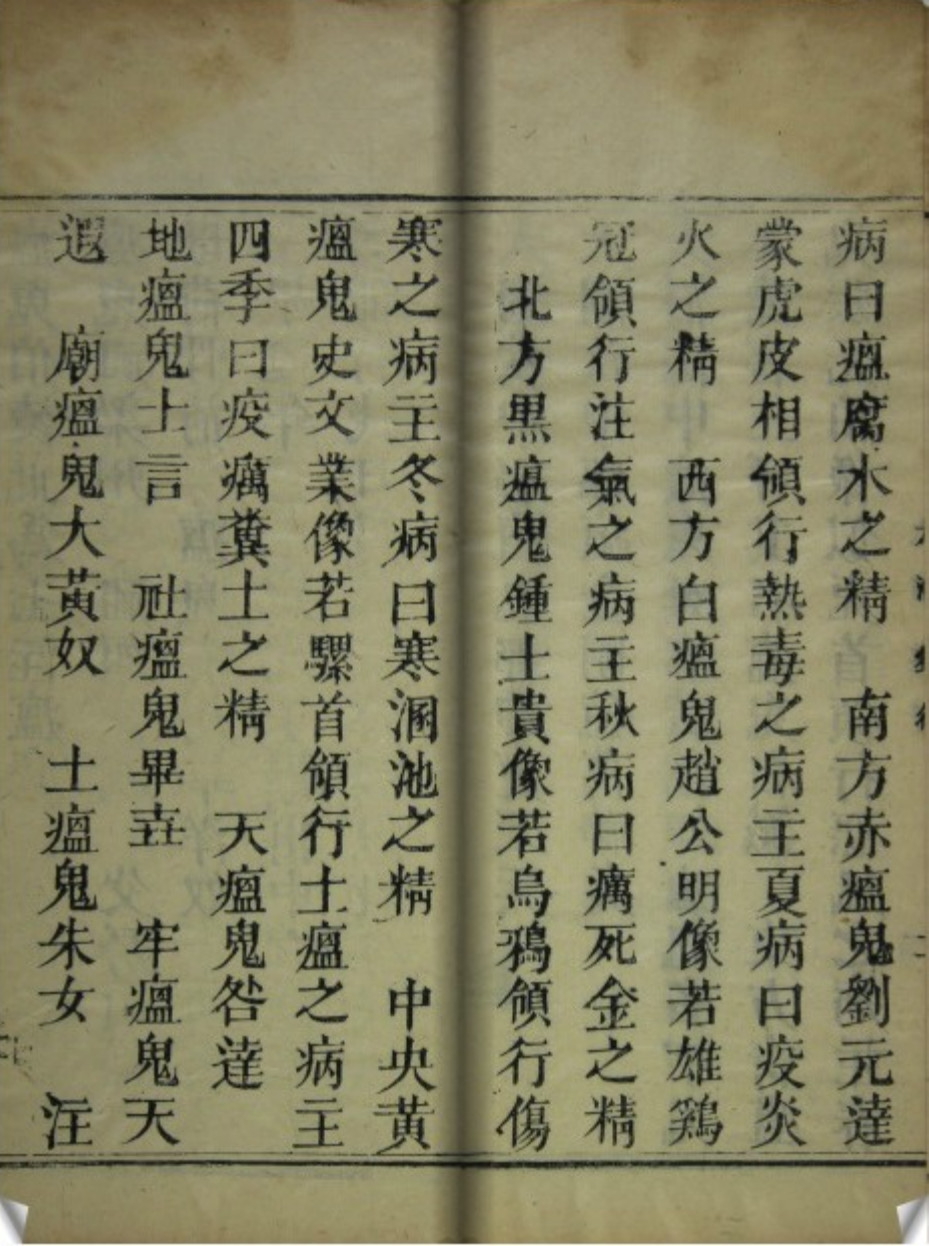 病曰瘟腐水之精　南方赤瘟鬼劉元達
蒙虎皮相領行熱毒之病主夏病曰疫炎
火之精　西方白瘟鬼趙公明像若雄鷄
冠領行注氣之病主秋病曰癘死金之精
北方黑瘟鬼鍾士貴像若烏鴉領行傷
寒之病主冬病曰寒溷池之精　中央黄
瘟鬼史文業像若騾首領行土瘟之病主
四季曰疫癘糞土之精　天瘟鬼咎達
地瘟鬼士言　社瘟鬼畢𡊮　牢瘟鬼天
遐　廟瘟鬼大黄奴　土瘟鬼朱女　注